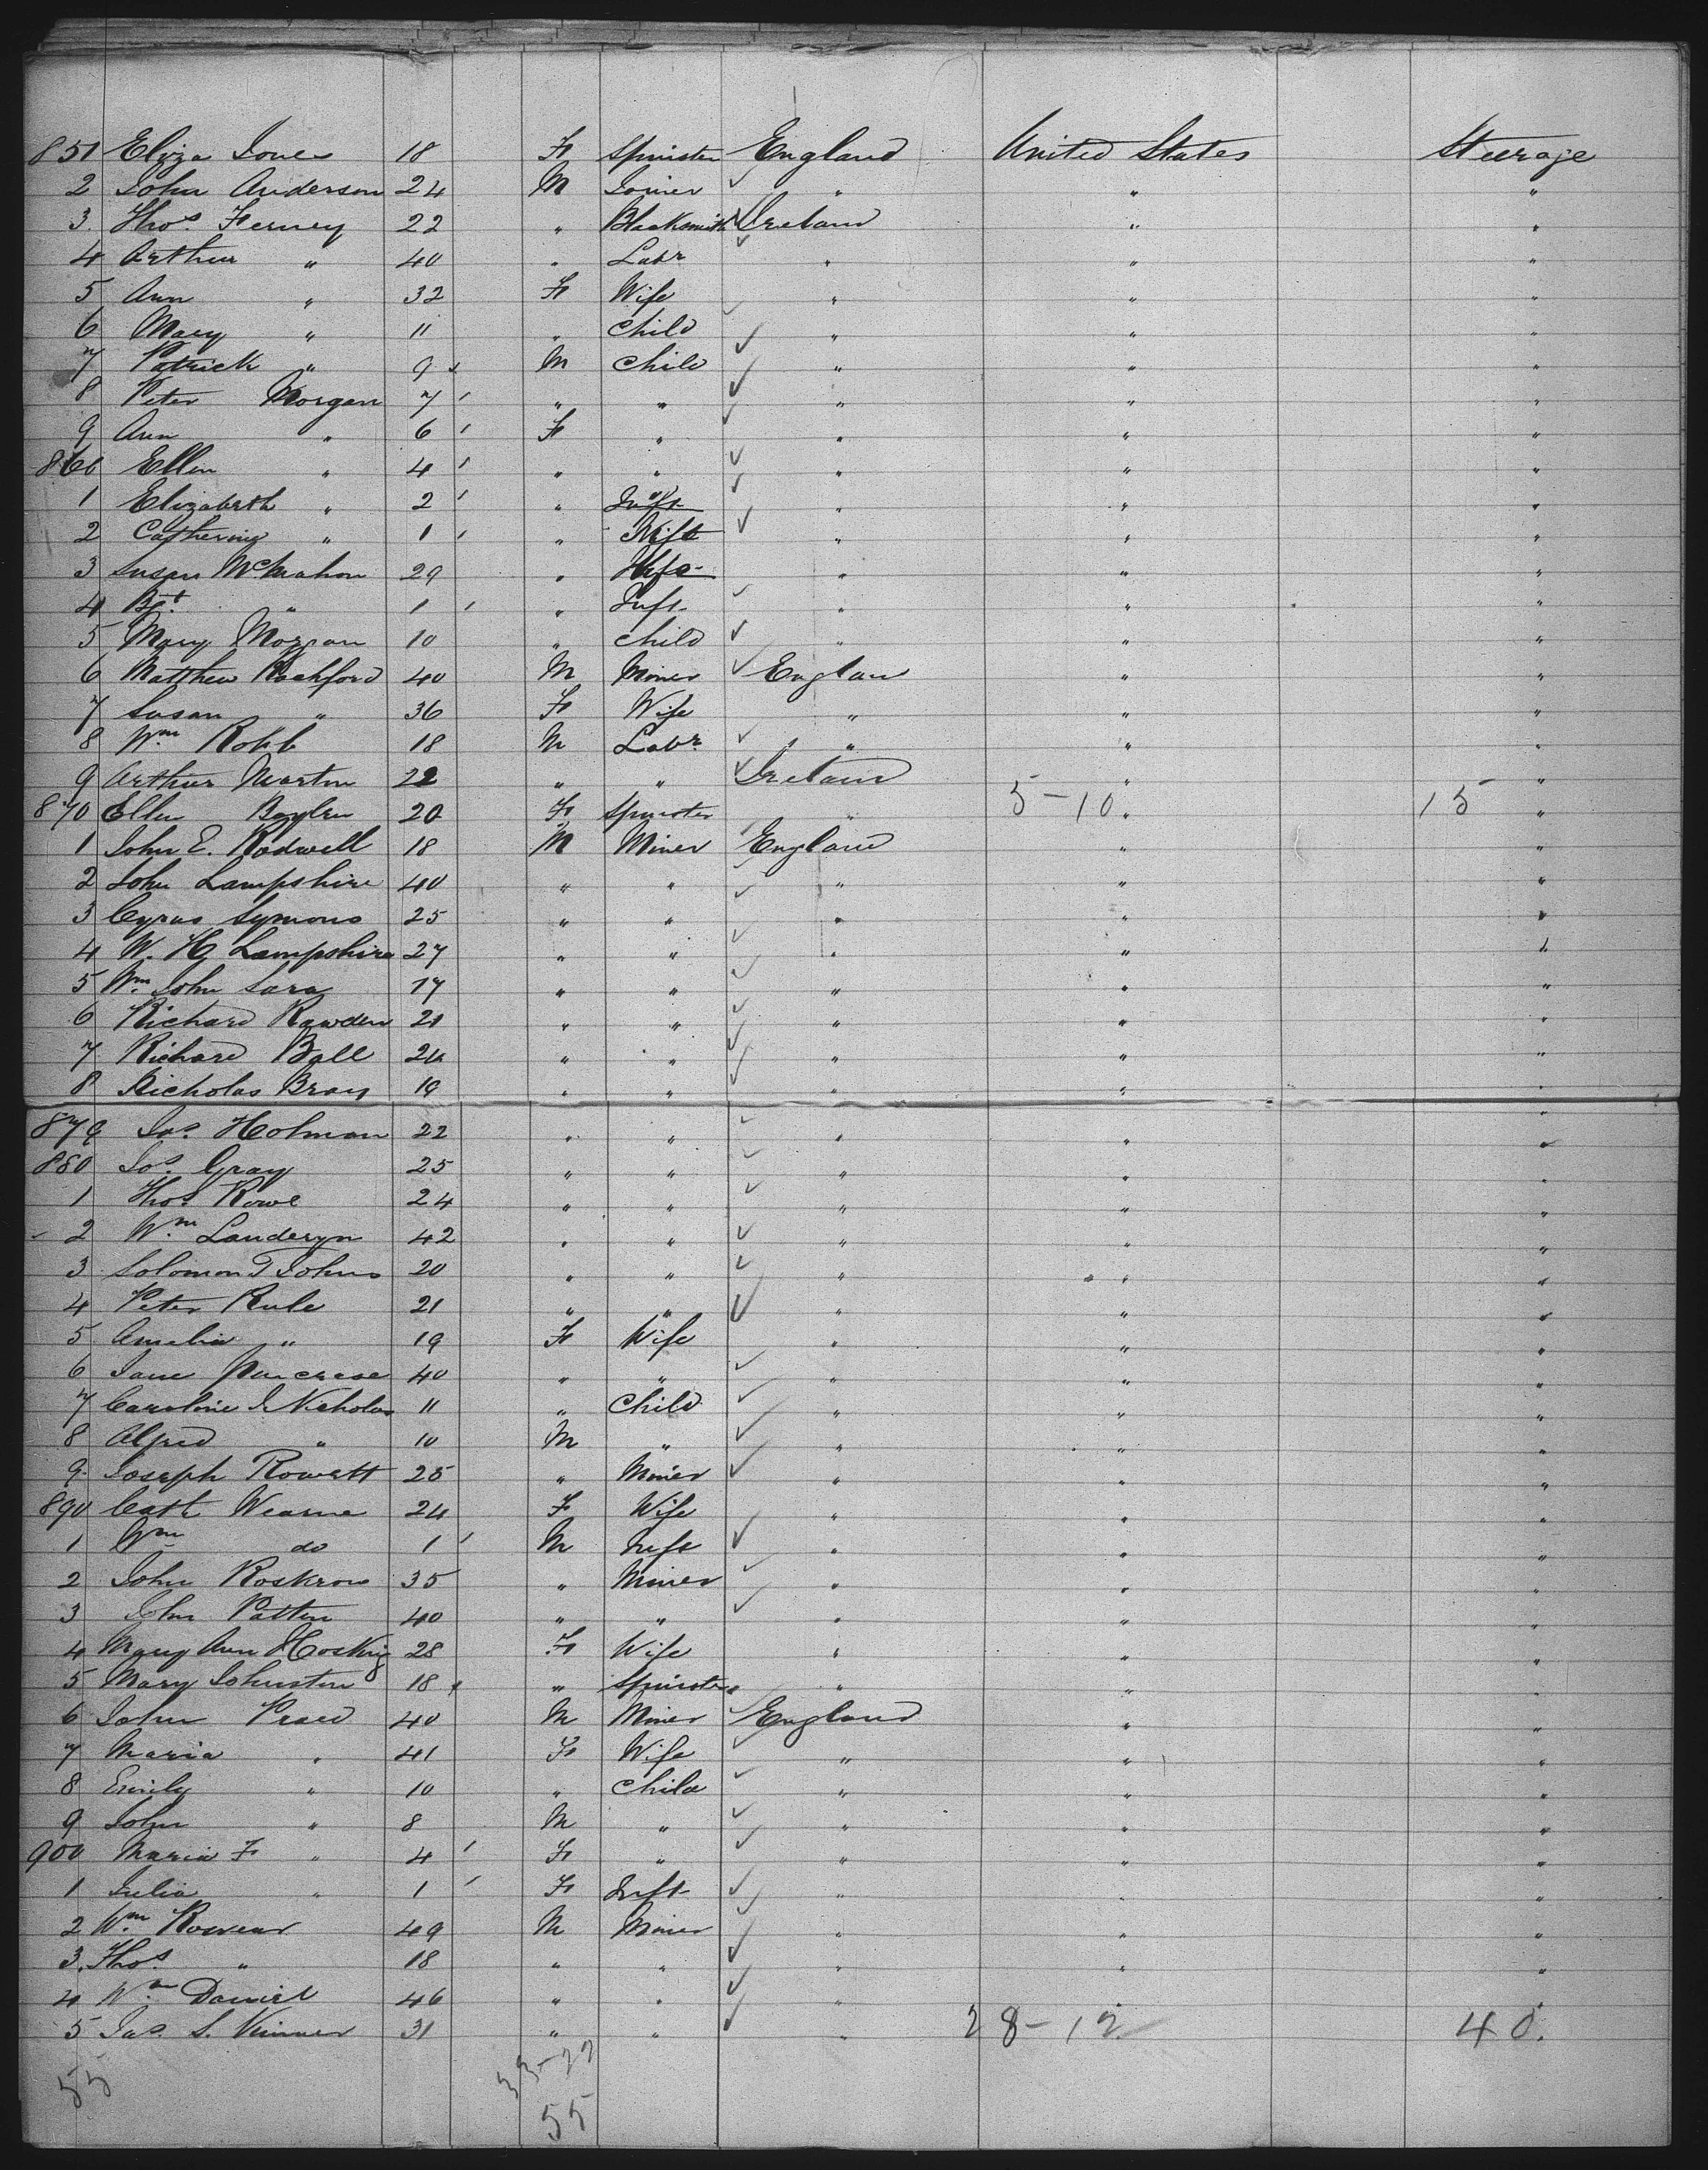 851 Eliza Jones 18 F Spinster England United States Steerage
2 John Anderson 24 M Joiner " " "
3 Thos. Ferney 22 " Blacksmith Ireland " "
4 Arthur " 40 " Labr " " "
5 Ann " 32 F Wife " " "
6 Mary " 11 " Child " " "
7 Patrick " 9 M Child " " "
8 Peter Morgan 7 " " " " "
9 Ann " 6 F " " " "
860 Ellen " 4 " " " " "
1 Elizabeth " 2 " Inft " " "
2 Catherine " 1 " " " "
3 Susan McMahon 29 " Wife " " "
4 Bgt. " 1 " Inft " " "
5 Mary Morgan 10 " Child " " "
6 Matthew Rochford 40 M Miner England " "
7 Susan " 36 F Wife " " "
8 Wm. Robb 18 M Labr " " "
9 Arthur Martin 22 " " Ireland " "
870 Ellen Boylen 20 F Spinster " 5-10 " 15 "
1 John E. Rodwell 18 M Miner England " "
2 John Lampshire 40 " " " " "
3 Cyrus Symons 25 " " " " "
4 W. Hy Lampshire 27 " " " " "
5 Wm John Sara 17 " " " " "
6 Richard Rawden 21 " " " " "
7 Richard Ball 24 " " " " "
8 Nicholas Bray 19 " " " " "
879 Jas. Holman 22 " " " " "
880 Jos. Gray 25 " " " " "
1 Thos. Rowe 24 " " " " "
2 Wm. Landeryn 42 " " " " "
3 Solomon T Johns 20 " " " " "
4 Peter Rule 21 " " " " "
5 Amelia " 19 F Wife " " "
6 Jane 40 " " " " "
7 Caroline J Nicholas 11 " Child " " "
8 Alfred " 10 M " " " "
9 Joseph Rowett 25 " Miner " " "
890 Cath Wearne 24 F Wife " " "
1 Wm do 1 M Inft " " "
2 John Roskrow 35 " Miner " " "
3 John Patten 40 " " " " "
4 Mary Ann Hosking 28 F Wife " " "
5 Mary Johnston 18 " Spinster " " "
6 John Praed 40 M Miner England " "
7 Maria " 41 F Wife " " "
8 Emily " 10 " Child " " "
9 John " 8 M " " " "
900 Maria F " 4 F " " " "
1 Julia " 1 F Inft " " "
2 Wm. 49 M Miner " " "
3. Thos. " 18 " " " " "
4 Wm. Daniel 46 " " " " "
5 Jas. S. 31 " " " 28-12 40.
55 33-22
55